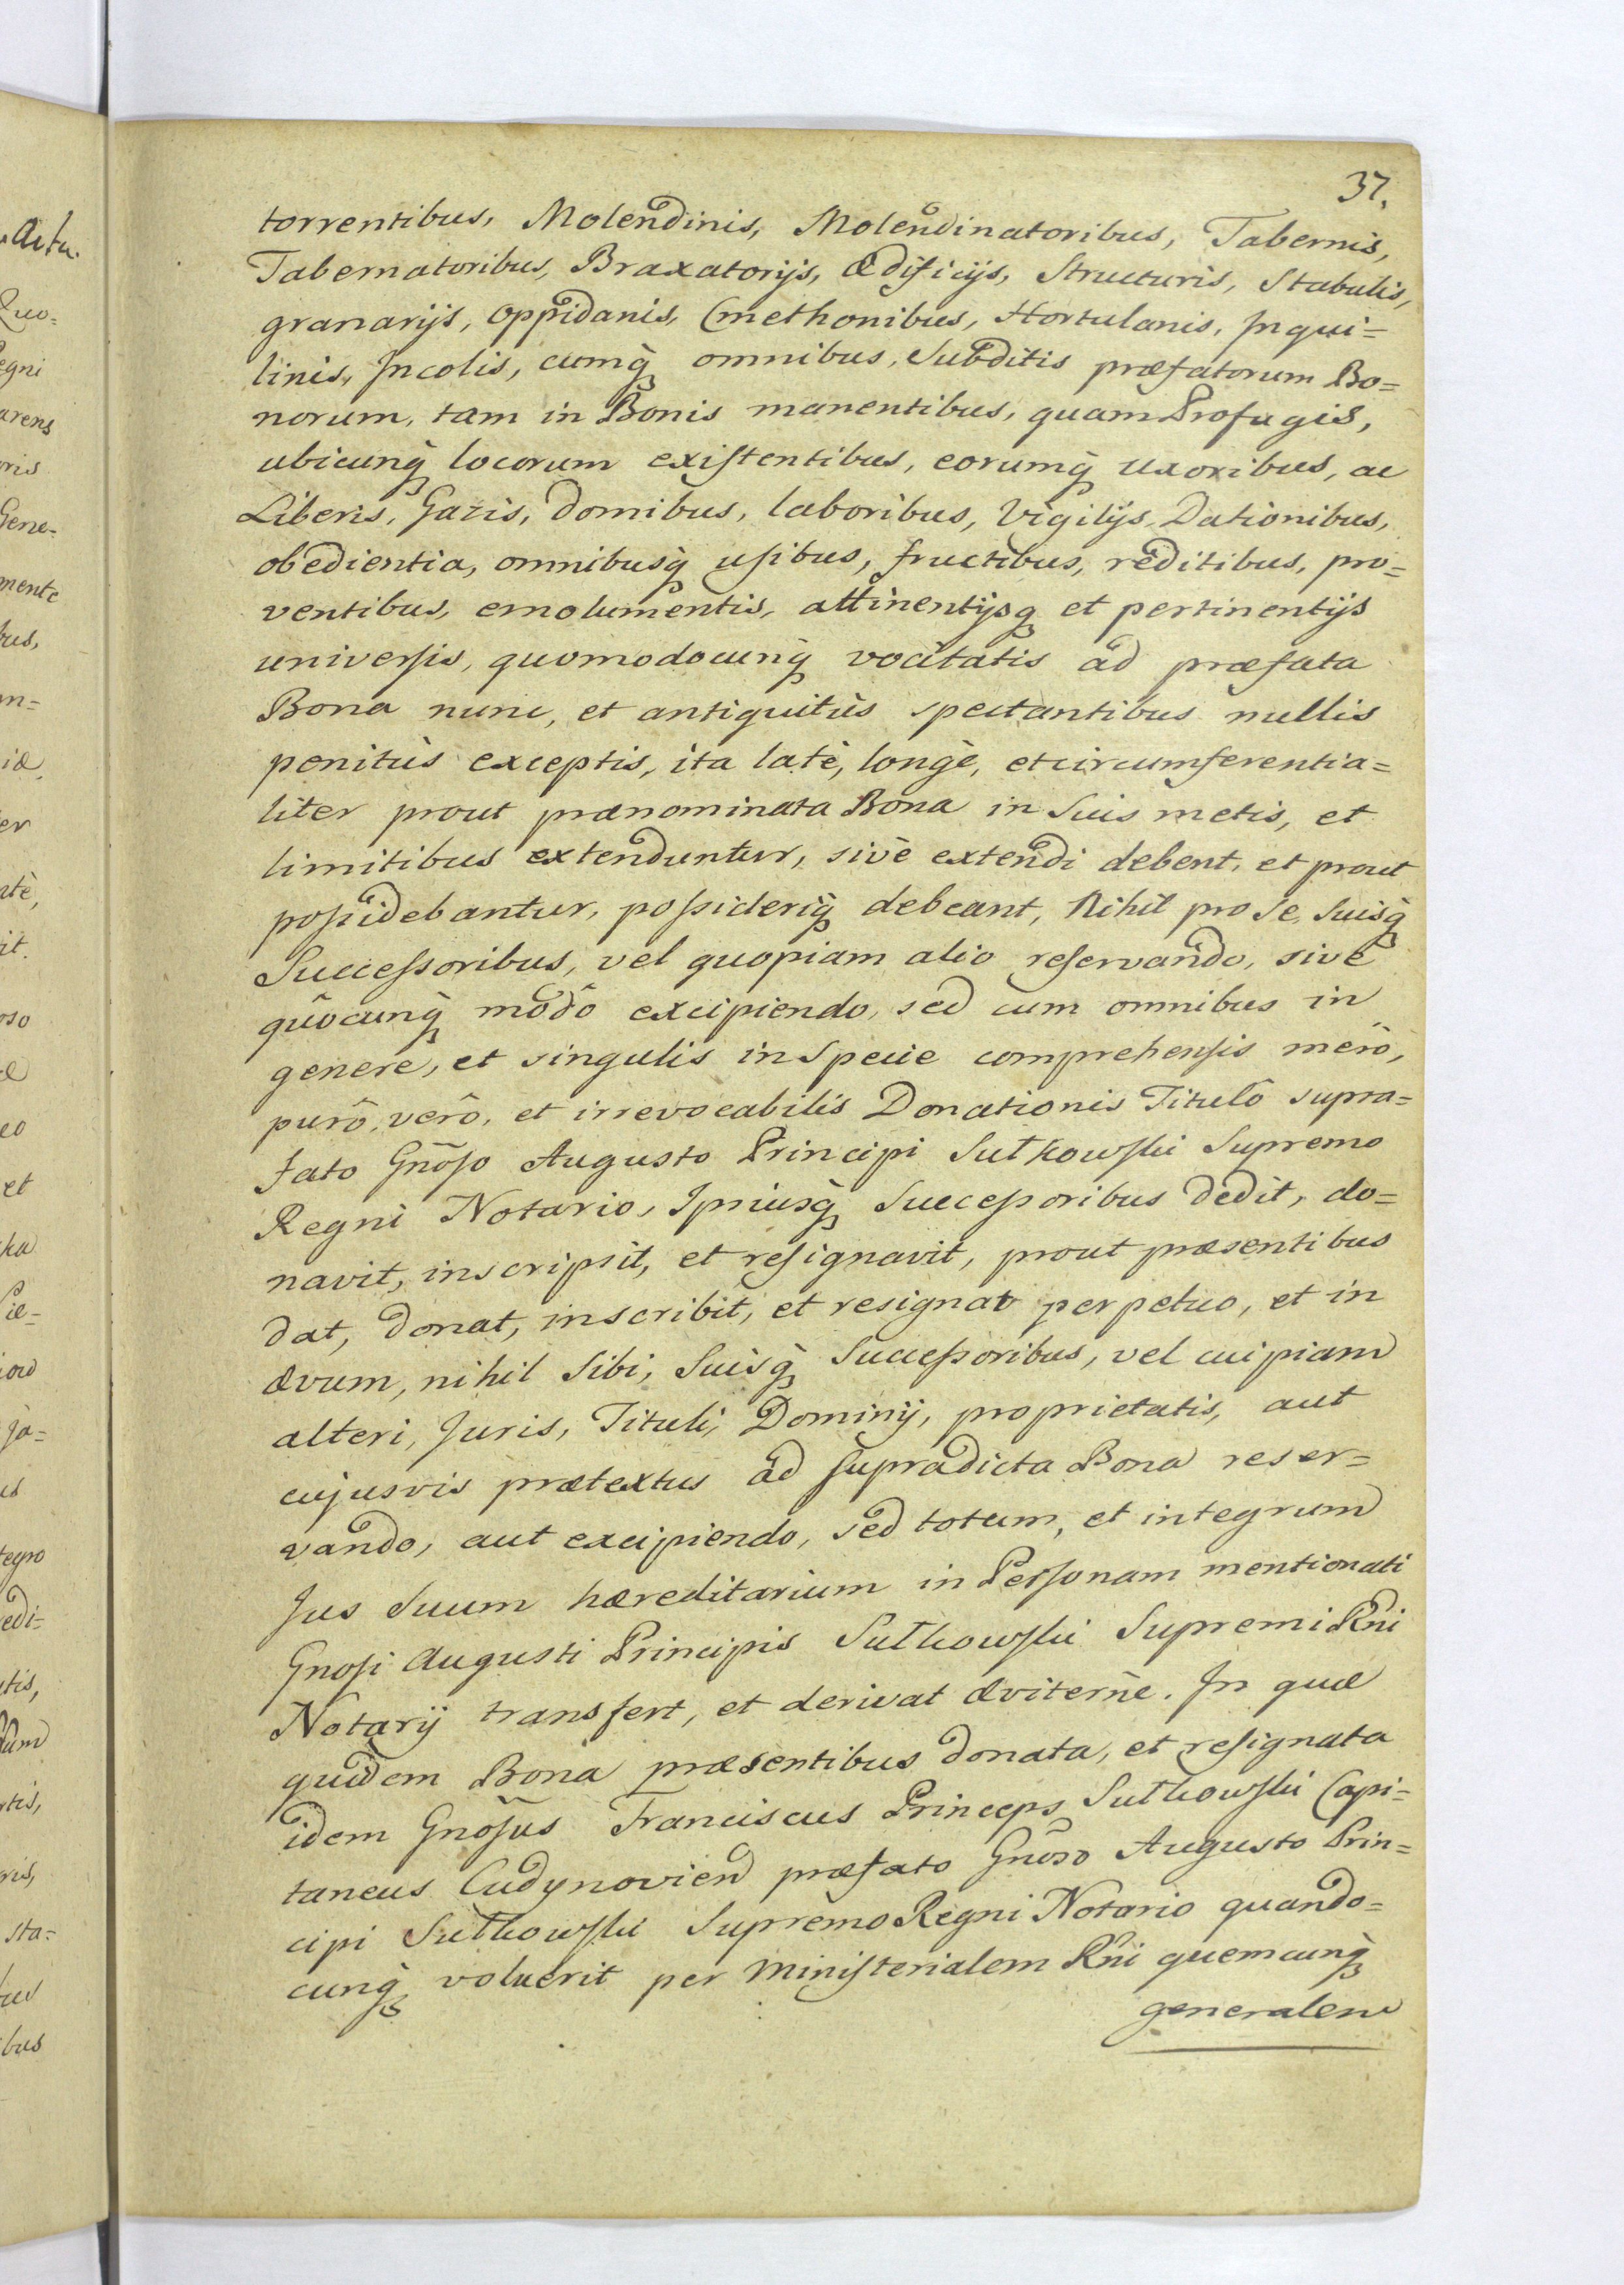 37.
torrentibus, Molendinis, Molendinatoribus, Tabernis,
Tabernatoribus, Braxatorijs, ædificijs, Structuris, Stabulis,
granarijs, oppidanis, Cmethonibus, Hortulanis, Inqui=
linis, Incolis, cumq̀ omnibus, Subditis præfatorum Bo=
norum, tam in Bonis manentibus, quam Profugis,
ubicunq̀ locorum existentibus, eorumq̀ uxoribus, ac
Liberis, Gazis, domibus, laboribus, Vigilijs, Dationibus,
obedientia, omnibusq̀ usibus, fructibus, reditibus, pro=
ventibus, emolumentis, attinentijsq̀ et pertinentijs
universis, quomodocunq̀ vocitatis ad præfata
Bona nunc, et antiquitùs spectantibus nullis
penitùs exceptis, ita latè, longè, et circumferentia=
liter prout prænominata Bona in Suis metis, et
limitibus extenduntur, sivè extendi debent, et prout
possidebantur, possideriq̀ debeant, Nihil pro Se, Suisq̀
Successoribus, vel quopiam alio reservando, sivè
quôcunq̀ modô excipiendo, sed cum omnibus in
genere, et singulis in Specie comprehensis merô,
purô, verô, et irrevocabilis Donationis Titulô supra=
fato Gnõso Augusto Principi Sułkowski Supremo
Regni Notario, Ipsiusq̀ Successoribus dedit, do=
navit, inscripsit, et resignavit, prout præsentibus
dat, donat, inscribit, et resignat perpetuo, et in
ævum, nihil Sibi, Suisq̀ Successoribus, vel cuipiam
alteri, Juris, Tituli, Dominij, proprietatis, aut
cujusvis prætextus ad supradicta Bona reser=
vando, aut excipiendo, sed totum, et integrum
Jus Suum hæreditarium in Personam mentionati
Gnosi Augusti Principis Sułkowski Supremi Rñi
Notarij transfert, et derivat æviternè. In quæ
quidem Bona præsentibus donata, et resignata
idem Gnõsus Franciscus Princeps Sułkowski Capi=
taneus Cudynovien præfato Gnõso Augusto Prin=
cipi Sułkowski Supremo Regni Notario quando=
cunq̀ voluerit per Ministerialem Rñi quemcunq̀
generalem